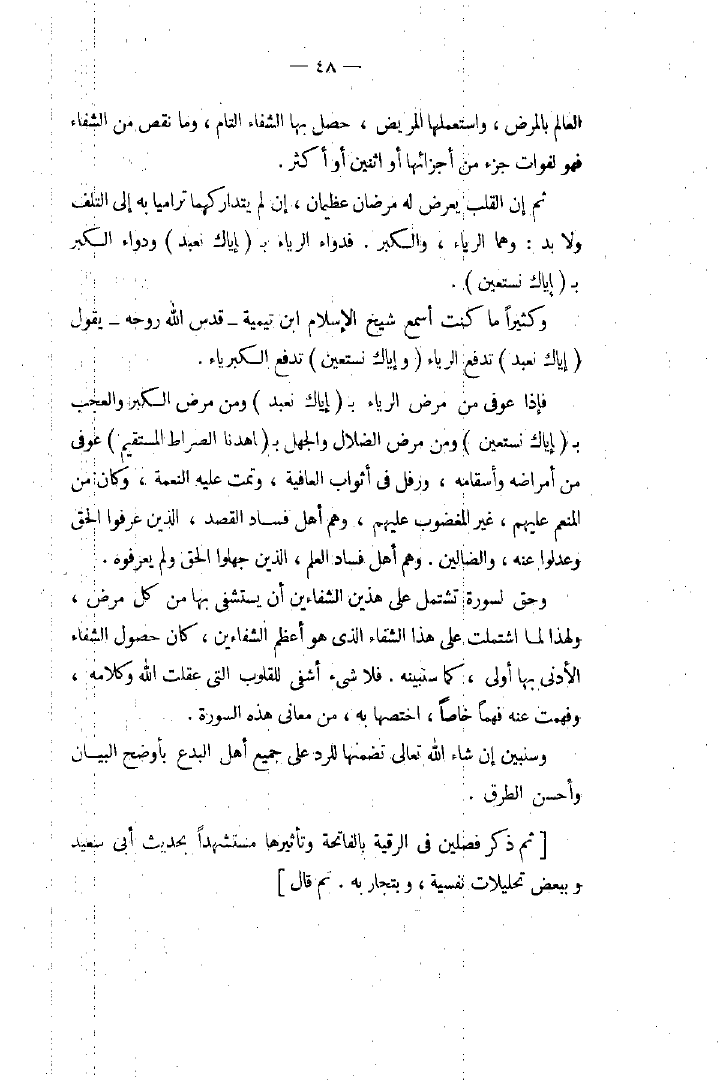 — ٤٨ —
العالم بالمرض ، واستعملها المريض ، حصل بها الشفاء التام ، وما نقص من الشفاء
فهو لفوات جزء من أجزائها أو اثنين أو أكثر .
ثم إن القلب يعرض له مرضان عظيمان ، إن لم يتداركهما تراميا به إلى التلف
ولا بد : وهما الرياء ، والكبر . فدواء الرياء بـ ( إياك نعبد ) ودواء الكبر
بـ ( إياك نستعين ) .
وكثيراً ما كنت أسمع شيخ الإسلام ابن تيمية ــ قدس الله روحه ــ يقول
( إياك نعبد ) تدفع الرياء ( و إياك نستعين ) تدفع الكبرياء .
فإذا عوفى من مرض الرياء بـ ( إياك نعبد ) ومن مرض الكبر والعجب
بـ ( إياك نستعين ) ومن مرض الضلال والجهل بـ ( اهدنا الصراط المستقيم ) عوفى
من أمراضه وأسقامه ، ورفل فى أثواب العافية ، وتمت عليه النعمة ، وكان من
المنعم عليهم ، غير المغضوب عليهم ، وهم أهل فساد القصد ، الذين عرفوا الحق
وعدلوا عنه ، والضالين . وهم أهل فساد العلم ، الذين جهلوا الحق ولم يعرفوه .
وحق لسورة تشتمل على هذين الشفاءين أن يستشفى بها من كل مرض ،
ولهذا لما اشتملت على هذا الشفاء الذى هو أعظم الشفاءين ، كان حصول الشفاء
الأدنى بها أولى ، كما سنبينه . فلا شىء أشفى للقلوب التى عقلت الله وكلامه ،
وفهمت عنه فهماً خاصاً ، اختصها به ، من معانى هذه السورة .
وسنبين إن شاء الله تعالى تضمنها للرد على جميع أهل البدع بأوضح البيان
وأحسن الطرق .
[ ثم ذكر فصلين فى الرقية بالفاتحة وتأثيرها مستشهداً بحديث أبى سعيد
و ببعض تحليلات نفسية ، و بتجار به . ثم قال ]